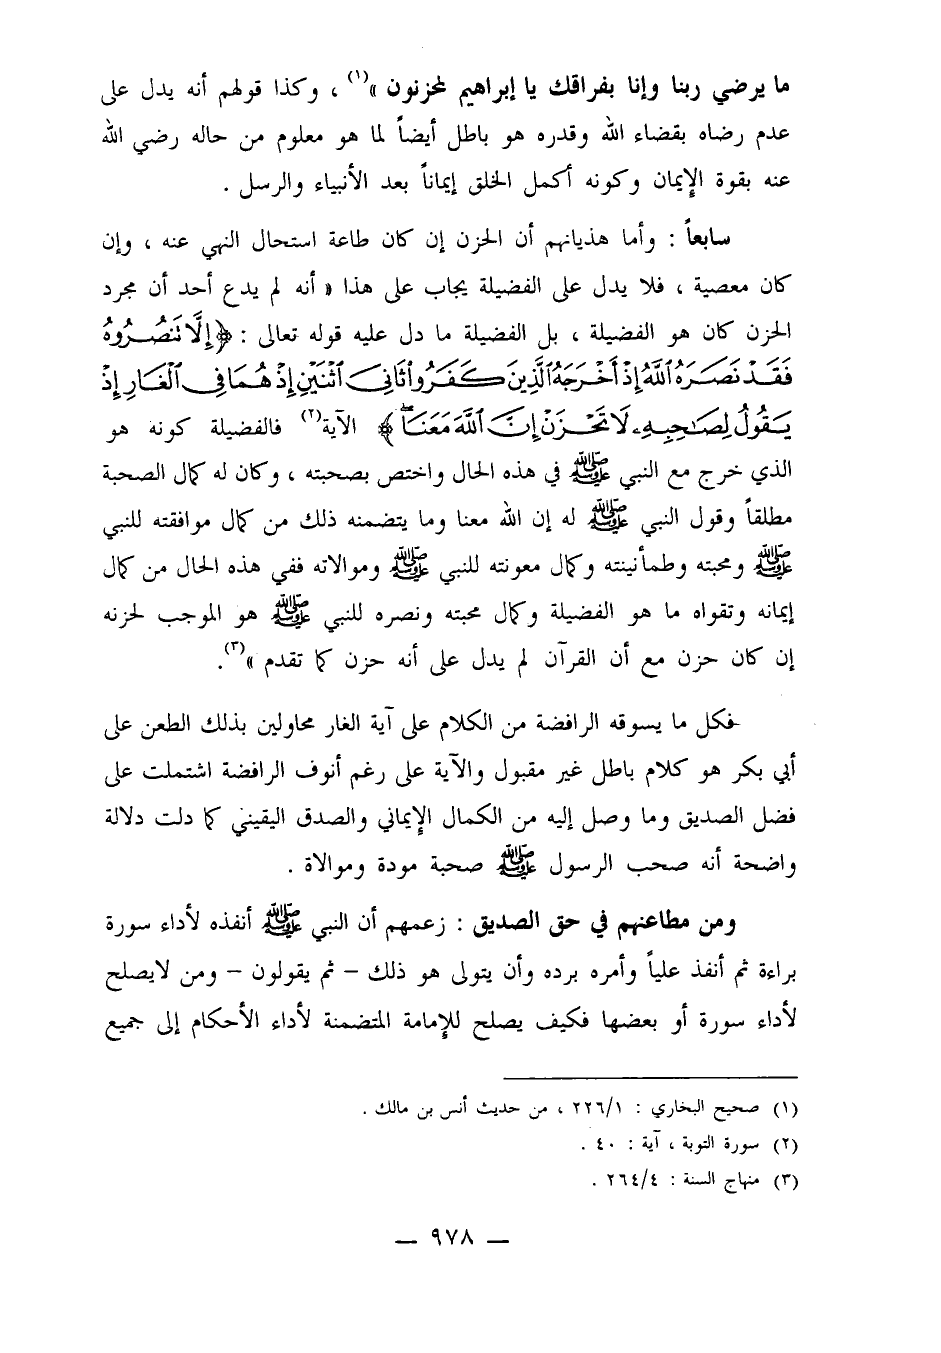 ما يرضي ربنا وإنا بفراقك يا إبراهيم لمحزنون »(١) ، وكذا قولهم أنه يدل على
عدم رضاه بقضاء الله وقدره هو باطل أيضاً لما هو معلوم من حاله رضي الله
عنه بقوة الإيمان وكونه أكمل الخلق إيماناً بعد الأنبياء والرسل .
سابعاً : وأما هذيانهم أن الحزن إن كان طاعة استحال النهي عنه ، وإن
كان معصية ، فلا يدل على الفضيلة يجاب على هذا « أنه لم يدع أحد أن مجرد
الحزن كان هو الفضيلة ، بل الفضيلة ما دل عليه قوله تعالى : ﴿ إِلَّا تَنصُرُوهُ
فَقَدْ نَصَرَهُ ٱللَّهُ إِذْ أَخْرَجَهُ ٱلَّذِينَ كَفَرُواْ ثَانِيَ ٱثْنَيْنِ إِذْ هُمَا فِي ٱلْغَارِ إِذْ
يَقُولُ لِصَٰحِبِهِۦ لَا تَحْزَنْ إِنَّ ٱللَّهَ مَعَنَا ﴾ الآية(٢) فالفضيلة كونه هو
الذي خرج مع النبي ﷺ في هذه الحال واختص بصحبته ، وكان له كمال الصحبة
مطلقاً وقول النبي ﷺ له إن الله معنا وما يتضمنه ذلك من كمال موافقته للنبي
ﷺ ومحبته وطمأنينته وكمال معونته للنبي ﷺ وموالاته ففي هذه الحال من كمال
إيمانه وتقواه ما هو الفضيلة وكمال محبته ونصره للنبي ﷺ هو الموجب لحزنه
إن كان حزن مع أن القرآن لم يدل على أنه حزن كما تقدم »(٣).
فكل ما يسوقه الرافضة من الكلام على آية الغار محاولين بذلك الطعن على
أبي بكر هو كلام باطل غير مقبول والآية على رغم أنوف الرافضة اشتملت على
فضل الصديق وما وصل إليه من الكمال الإيماني والصدق اليقيني كما دلت دلالة
واضحة أنه صحب الرسول ﷺ صحبة مودة وموالاة .
ومن مطاعنهم في حق الصديق : زعمهم أن النبي ﷺ أنفذه لأداء سورة
براءة ثم أنفذ علياً وأمره برده وأن يتولى هو ذلك – ثم يقولون – ومن لايصلح
لأداء سورة أو بعضها فكيف يصلح للإمامة المتضمنة لأداء الأحكام إلى جميع
(١) صحيح البخاري : ٢٢٦/١ ، من حديث أنس بن مالك .
(٢) سورة التوبة ، آية : ٤٠ .
(٣) منهاج السنة : ٢٦٤/٤ .
— ٩٧٨ —